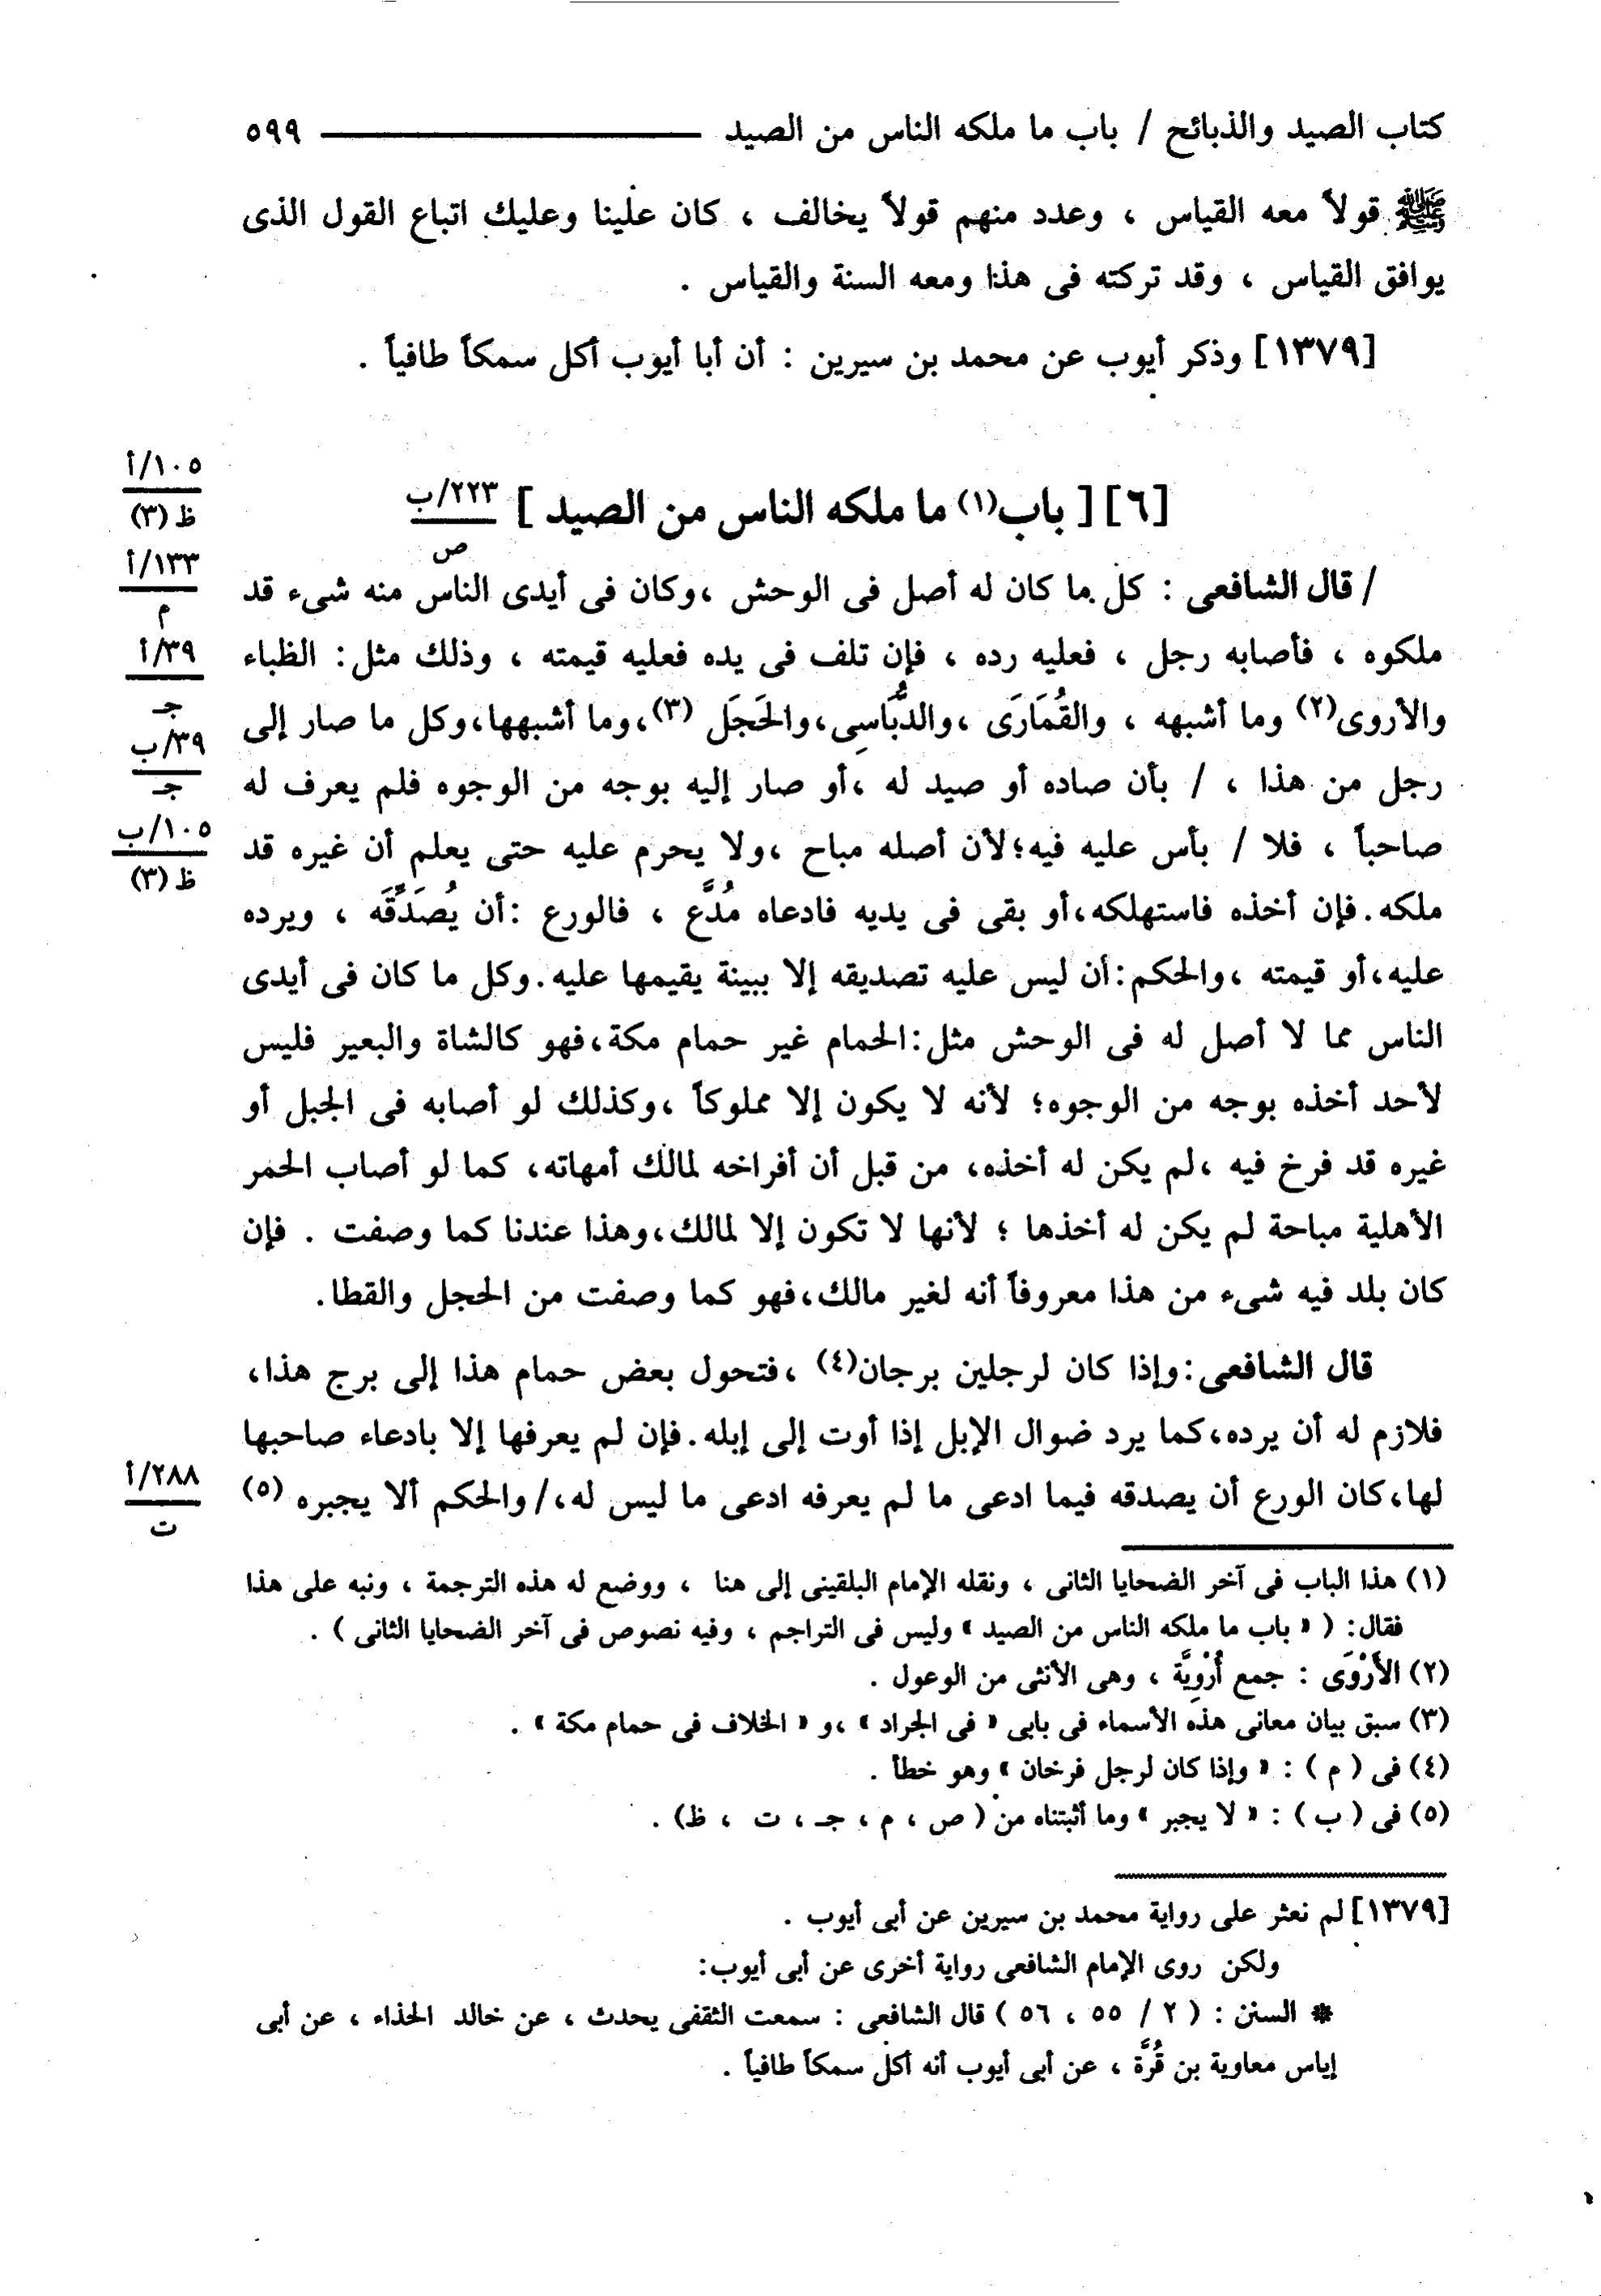 كتاب الصيد والذبائح / باب ما ملكه الناس من الصيد ـــــــــــــ ٥٩٩
ﷺ قولاً معه القياس ، وعدد منهم قولاً يخالف ، كان علينا وعليك اتباع القول الذى
يوافق القياس ، وقد تركته فى هذا ومعه السنة والقياس .
[١٣٧٩] وذكر أيوب عن محمد بن سيرين : أن أبا أيوب أكل سمكاً طافياً .
١٠٥/أ
ظ (٣)
[٦] [ باب(١) ما ملكه الناس من الصيد ] ٢٢٣/ب
ص
١٣٣/أ
م
/ قال الشافعى : كل ما كان له أصل فى الوحش ،وكان فى أيدى الناس منه شىء قد
ملكوه ، فأصابه رجل ، فعليه رده ، فإن تلف فى يده فعليه قيمته ، وذلك مثل: الظباء
٣٩/أ
جـ
والأروى(٢) وما أشبهه ، والقُمَارَى ،والدُّبَّاسِى،والحَجَل (٣)،وما أشبهها،وكل ما صار إلى
٣٩/ب
جـ
رجل من هذا ، / بأن صاده أو صيد له ،أو صار إليه بوجه من الوجوه فلم يعرف له
١٠٥/ب
ظ (٣)
صاحباً ، فلا / بأس عليه فيه؛لأن أصله مباح ،ولا يحرم عليه حتى يعلم أن غيره قد
ملكه. فإن أخذه فاستهلكه،أو بقى فى يديه فادعاه مُدَّع ، فالورع :أن يُصَدِّقَه ، ويرده
عليه،أو قيمته ،والحكم:أن ليس عليه تصديقه إلا ببينة يقيمها عليه.وكل ما كان فى أيدى
الناس مما لا أصل له فى الوحش مثل:الحمام غير حمام مكة،فهو كالشاة والبعير فليس
لأحد أخذه بوجه من الوجوه؛ لأنه لا يكون إلا مملوكاً ،وكذلك لو أصابه فى الجبل أو
غيره قد فرخ فيه ،لم يكن له أخذه، من قبل أن أفراخه لمالك أمهاته، كما لو أصاب الحمر
الأهلية مباحة لم يكن له أخذها ؛ لأنها لا تكون إلا لمالك،وهذا عندنا كما وصفت . فإن
كان بلد فيه شىء من هذا معروفاً أنه لغير مالك،فهو كما وصفت من الحجل والقطا.
قال الشافعى:وإذا كان لرجلين برجان(٤) ،فتحول بعض حمام هذا إلى برج هذا،
فلازم له أن يرده،كما يرد ضوال الإبل إذا أوت إلى إبله.فإن لم يعرفها إلا بادعاء صاحبها
لها،كان الورع أن يصدقه فيما ادعى ما لم يعرفه ادعى ما ليس له،/والحكم ألا يجبره (٥)
٢٨٨/أ
ت
(١) هذا الباب فى آخر الضحايا الثانى ، ونقله الإمام البلقينى إلى هنا ، ووضع له هذه الترجمة ، ونبه على هذا
فقال: ( « باب ما ملكه الناس من الصيد » وليس فى التراجم ، وفيه نصوص فى آخر الضحايا الثانى ) .
(٢) الأَرْوَى : جمع أُرْوِيَّة ، وهى الأنثى من الوعول .
(٣) سبق بيان معانى هذه الأسماء فى بابى « فى الجراد » ،و « الخلاف فى حمام مكة » .
(٤) فى ( م ) : « وإذا كان لرجل فرخان » وهو خطأ .
(٥) فى ( ب ) : « لا يجبر » وما أثبتناه من ( ص ، م ، جـ ، ت ، ظ) .
[١٣٧٩] لم نعثر على رواية محمد بن سيرين عن أبى أيوب .
ولكن روى الإمام الشافعى رواية أخرى عن أبى أيوب:
* السنن : ( ٢ / ٥٥ ، ٥٦ ) قال الشافعى : سمعت الثقفى يحدث ، عن خالد الحذاء ، عن أبى
إياس معاوية بن قُرَّة ، عن أبى أيوب أنه أكل سمكاً طافياً .